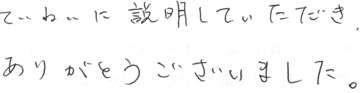 ていねいに説明していただき、
ありがとうございました。